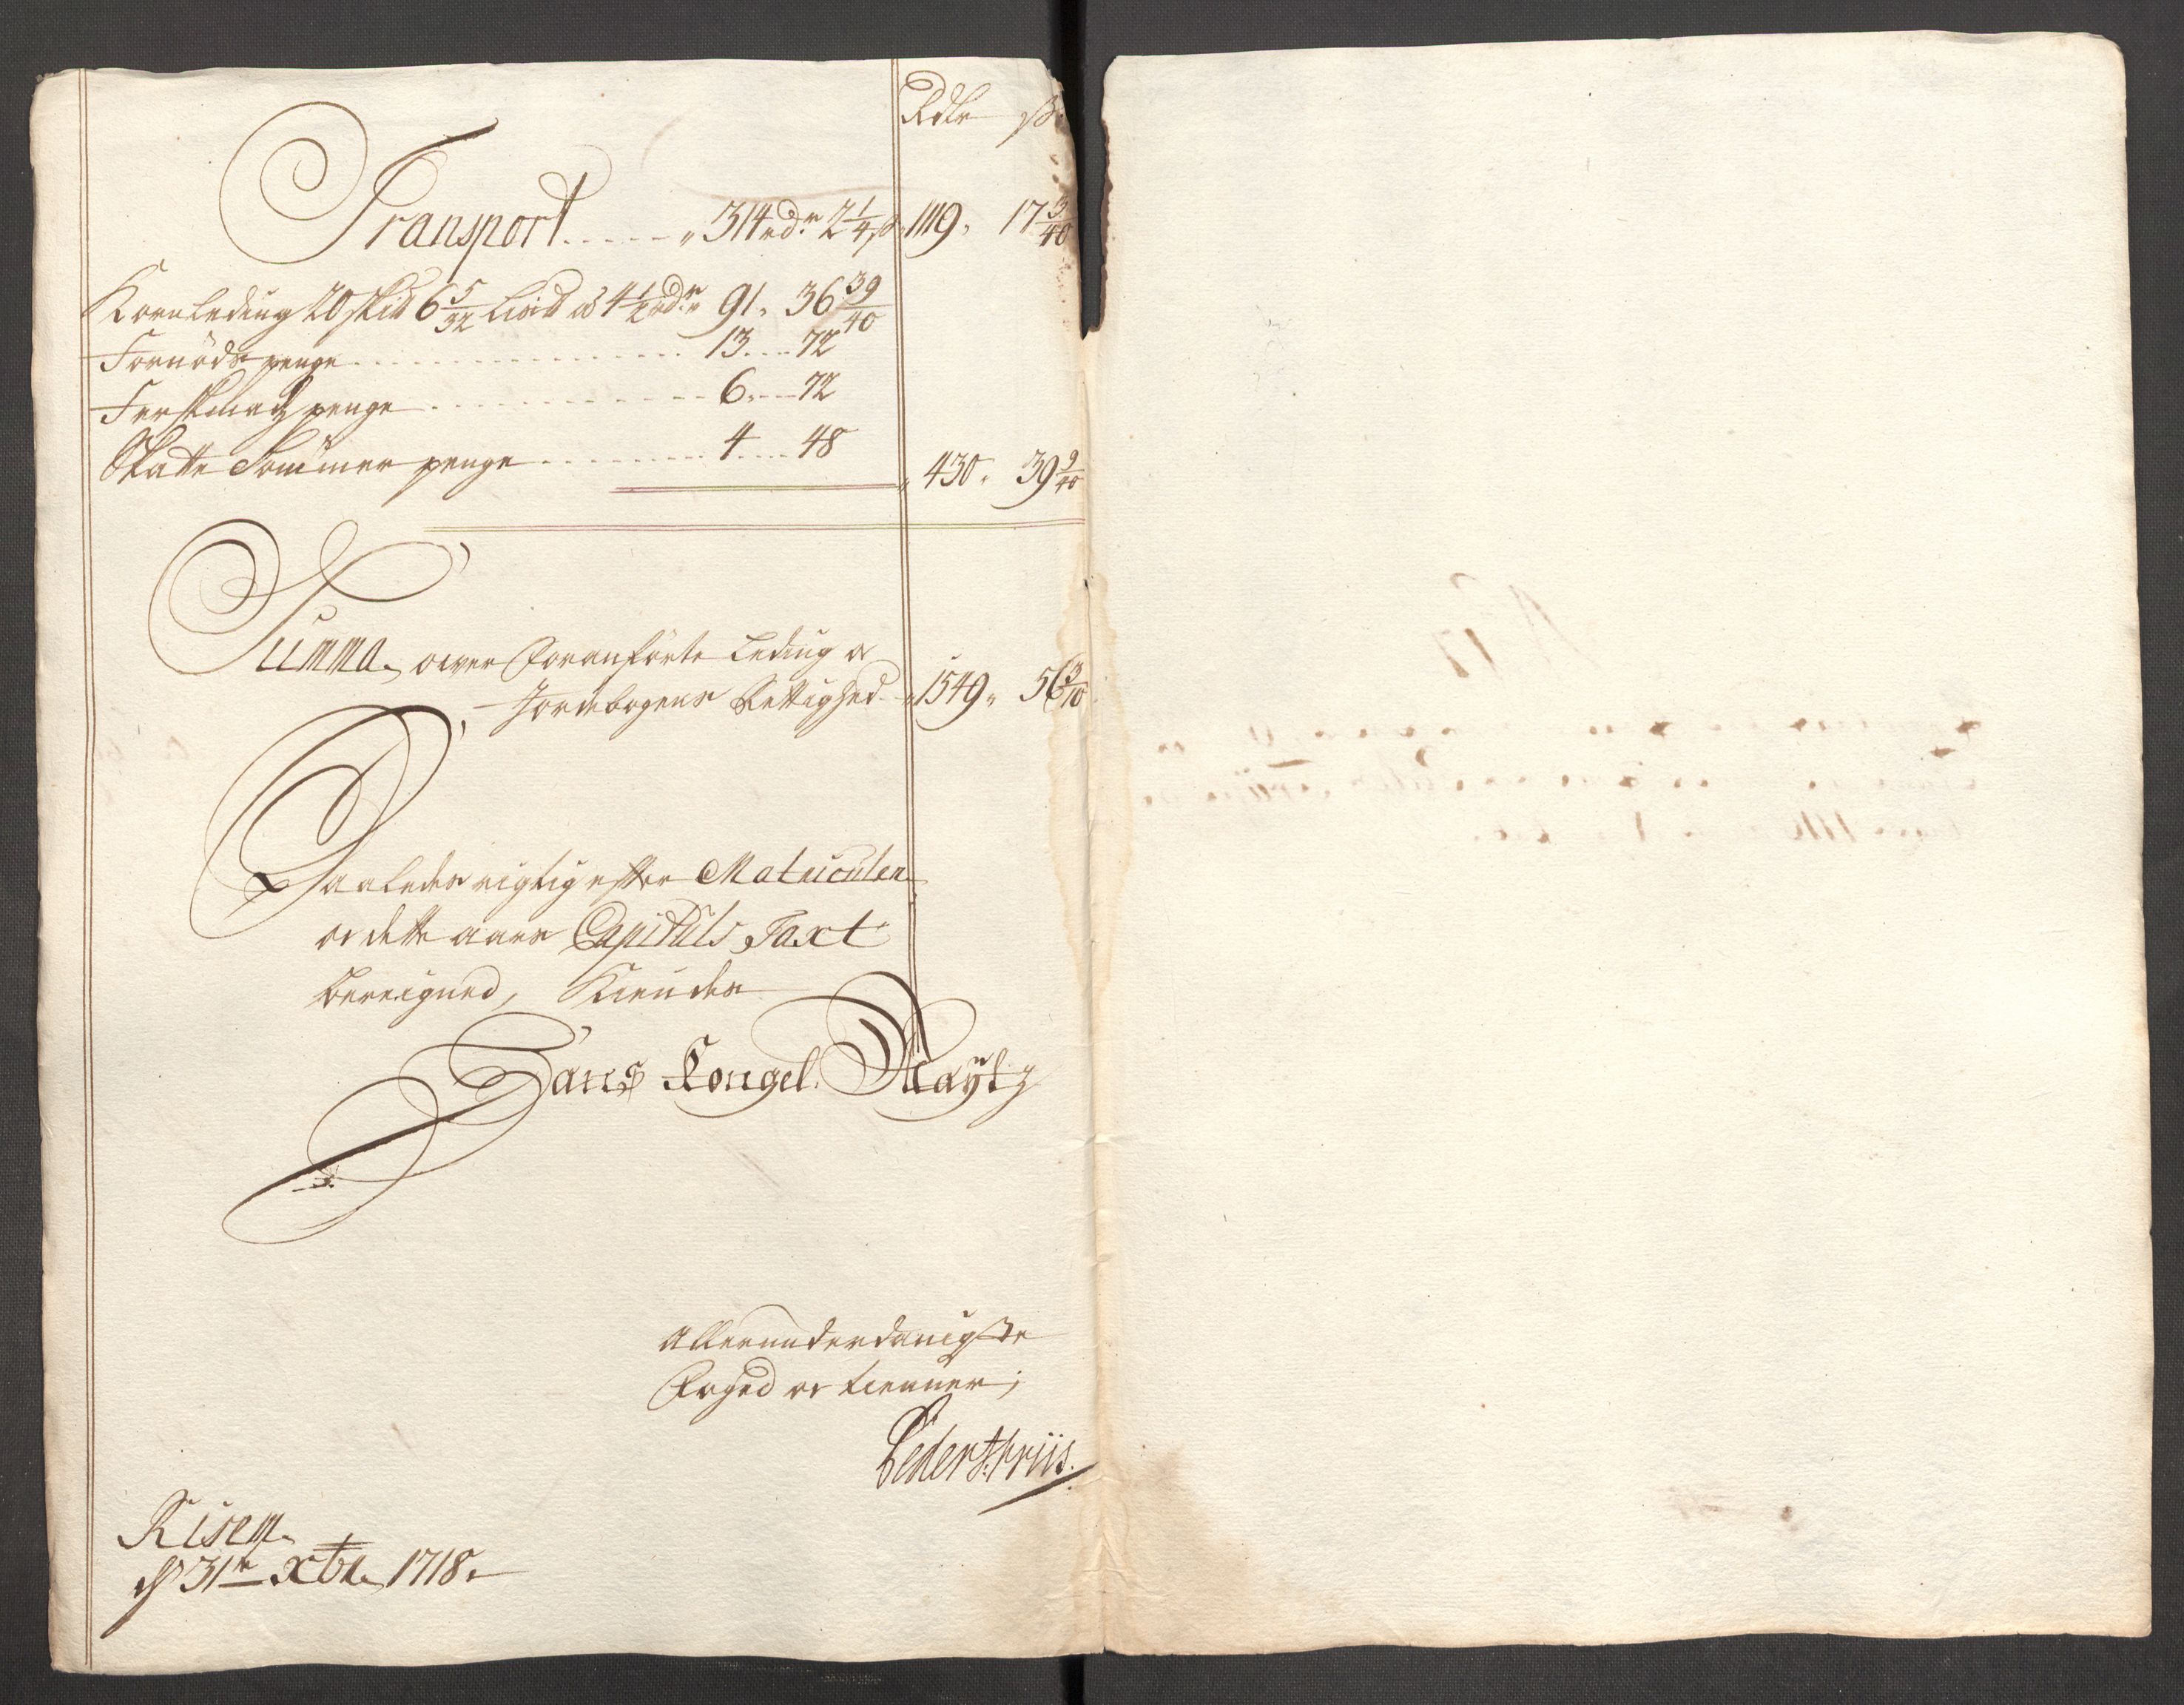 Rdlr ß
Transport ..... „ 314 rdr 2 1/4 ß „ 1119 „ 17 3/40
Kornleding 20 skid 6 5/32 Lisid a 4 1/2 rdr „ 91 „ 36 39/40
Fornöds penge ................ 13 .... 72
Ferskmads penge ............ 6 .... 72
Skatte Sommer penge ......... 4 .... 48
„ 430 „ 39 9/40
Summa ower foranförte Leding oc
Jordebogens Rettighed „ 1549 „ 56 3/10
Saaledes rigtig efter Matriculen
oc dette aars Capituls Taxt
bereigned, Kiendes
Hans Kongel. Maÿtz
Allerunderdanigste
Foged oc tienner;
Peder Friis.
Risem
d 31te xbr 1718.